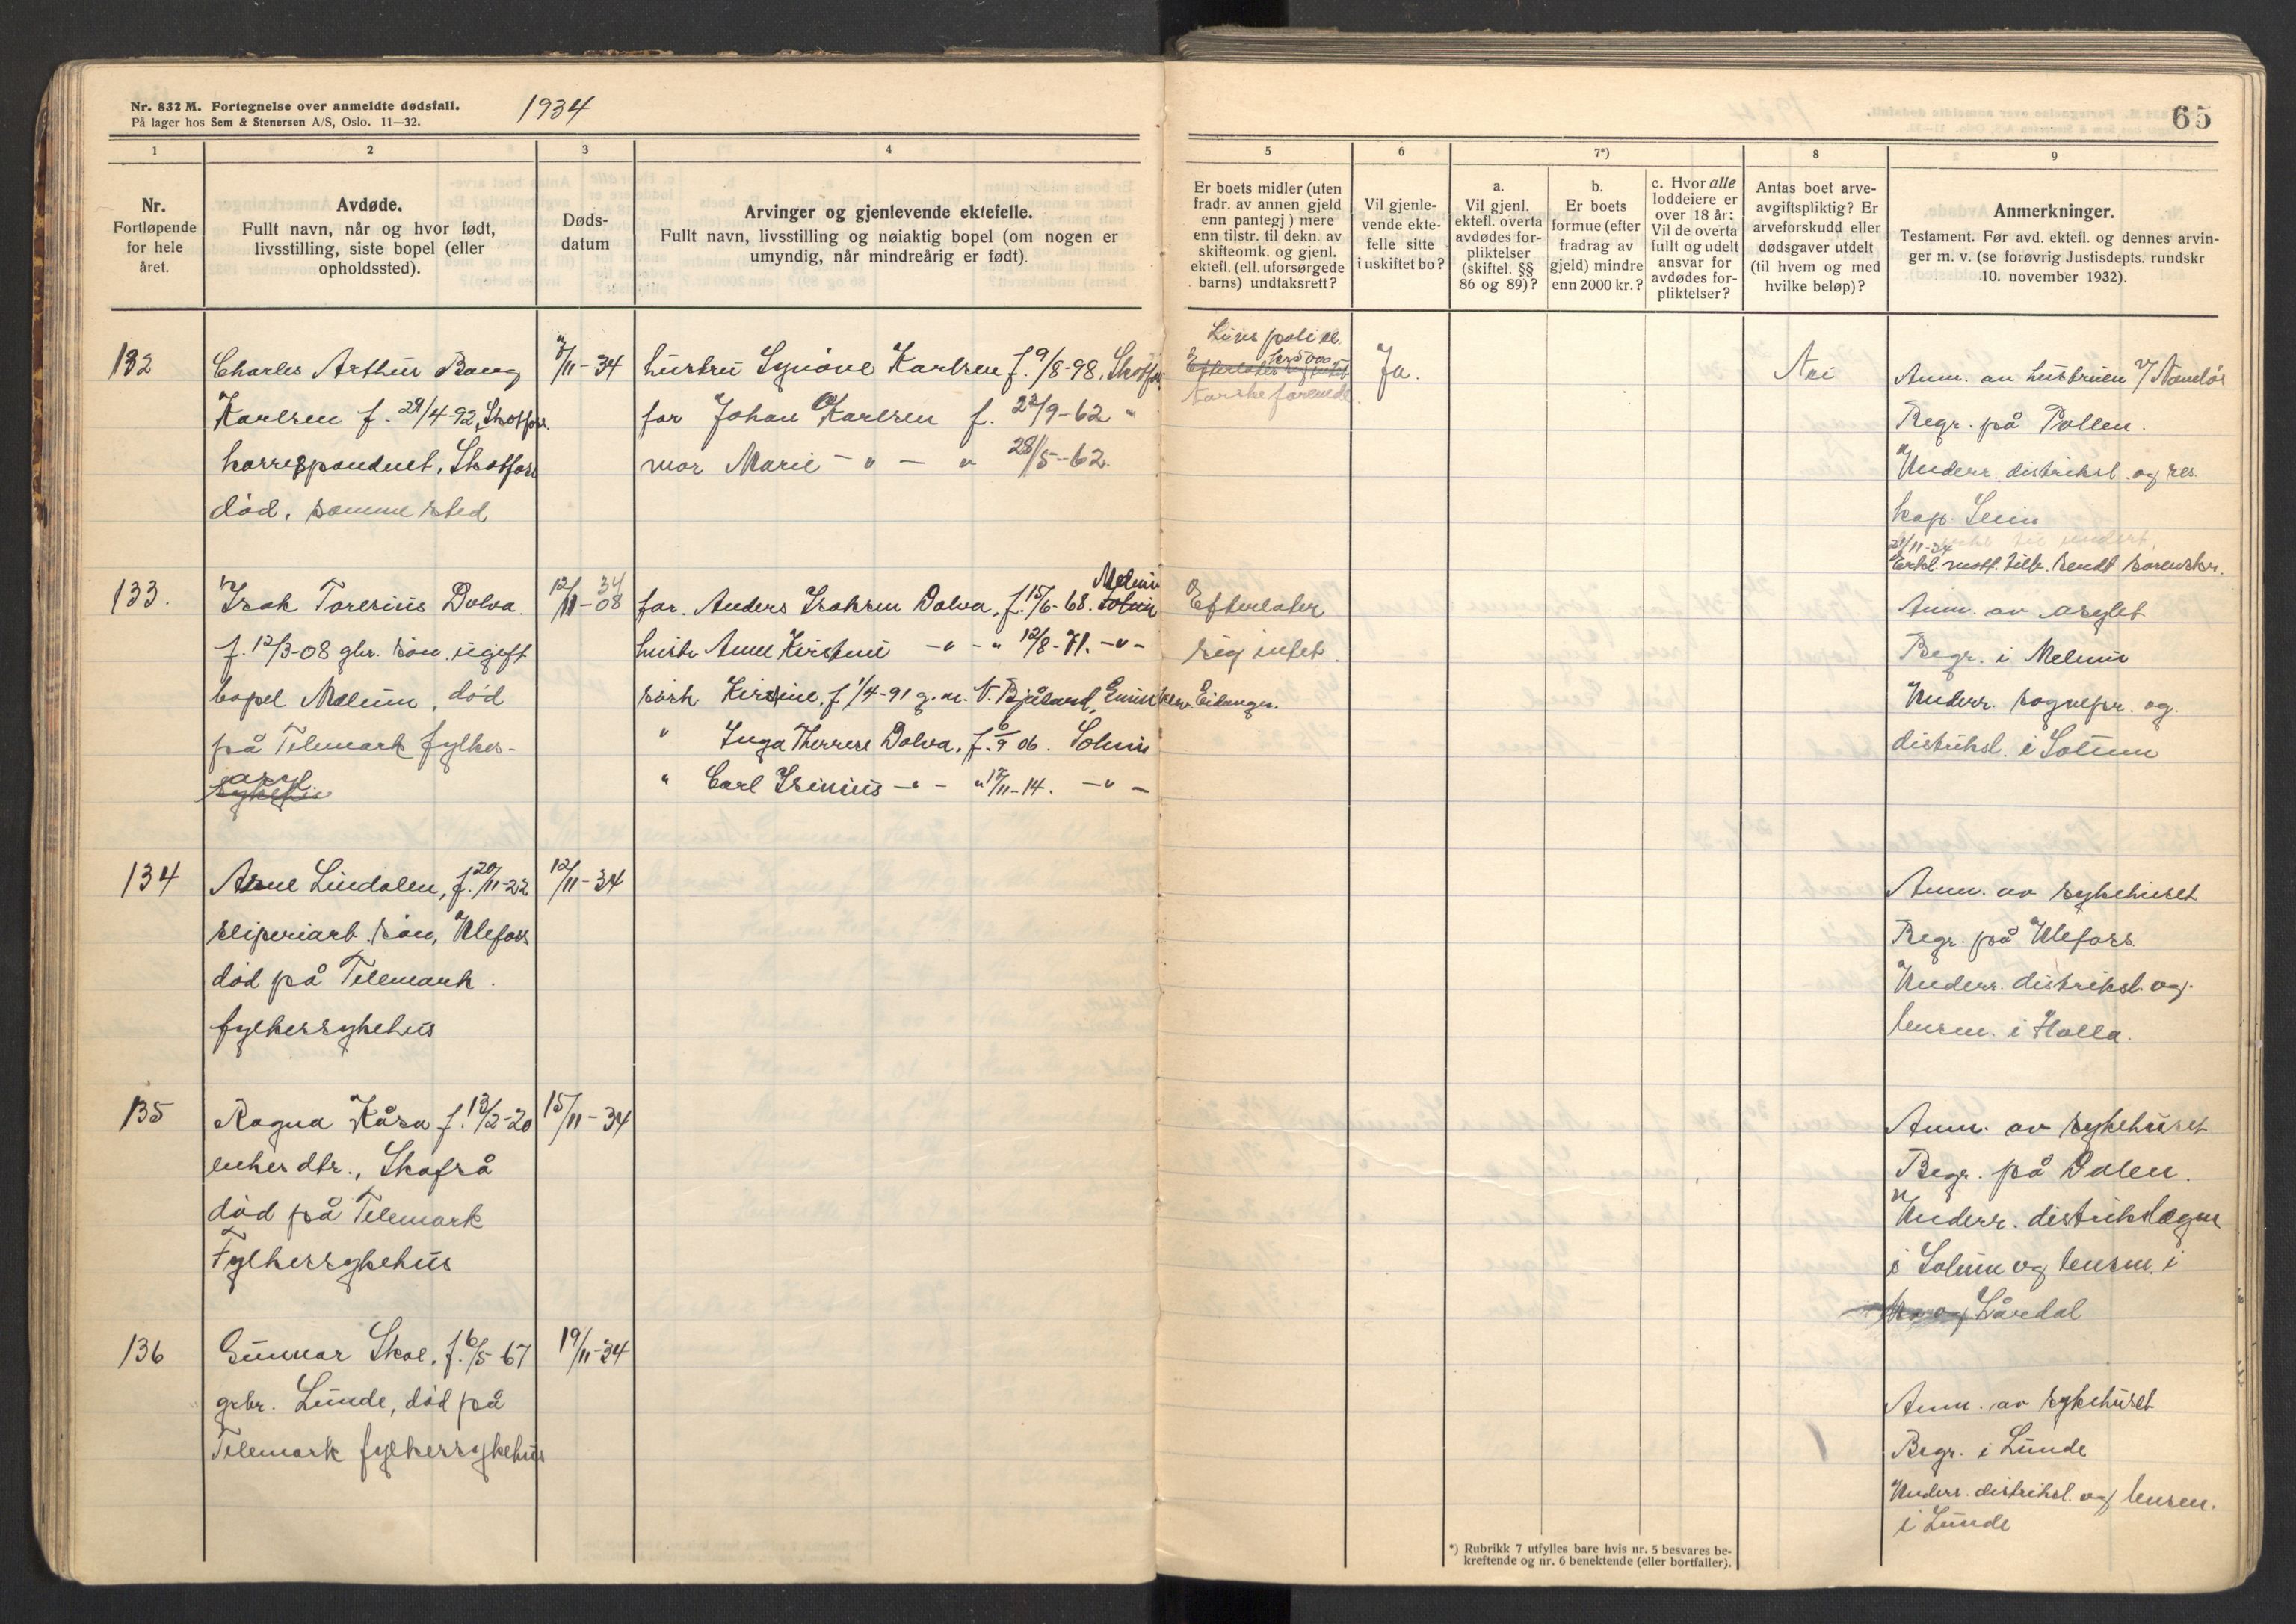 Nr. 832 M. Fortegnelse over anmeldte dødsfall.
På lager hos Sem & Stenersen A/S, Oslo. 11—32.
1934
65
1
2
3
4
5
6
7*)
8
9
Nr.
Fortløpende
for hele
året.
Avdøde.
Fullt navn, når og hvor født,
livsstilling, siste bopel (eller
opholdssted).
Døds-
datum
Arvinger og gjenlevende ektefelle.
Fullt navn, livsstilling og nøiaktig bopel (om nogen er
umyndig, når mindreårig er født).
Er boets midler (uten
fradr. av annen gjeld
enn pantegj) mere
enn tilstr. til dekn. av
skifteomk. og gjenl.
ektefl. (ell. uforsørgede
barns) undtaksrett?
Vil gjenle-
vende ekte-
felle sitte
i uskiftet bo?
a.
Vil gjenl.
ektefl. overta
avdødes for-
pliktelser
(skiftel. §§
86 og 89)?
b.
Er boets
formue (efter
fradrag av
gjeld) mindre
enn 2000 kr.?
c. Hvor alle
loddeiere er
over 18 år:
Vil de overta
fullt og udelt
ansvar for
avdødes for-
pliktelser?
Antas boet arve-
avgiftspliktig? Er
arveforskudd eller
dødsgaver utdelt
(til hvem og med
hvilke beløp)?
Anmerkninger.
Testament. Før avd. ektefl. og dennes arvin-
ger m. v. (se forøvrig Justisdepts. rundskr
10. november 1932).
132
Charles Arthur Bang
Karlsen f. 29/4-92, Skotfoss
korrespondent, Skotfoss
død. samme sted
/11-34
hustru Synøve Karlsen f. 9/8-98, Skotfoss
far Johan Karlsen f. 22/9-62 "
mor Marie - " - " 28/5-62.
Livspolise
kr 5000
Efterlater sig intet
Ja.
Nei
Anm. av hustruen
Begr. på Pollen.
Underr. distriksl. og res.
kap. Lein
21/11-34
Erkl. mott. tilb. sendt sorenskr.
133.
Isak Toresius Dolva.
f. 12/3-08 gbr. søn. ugift
bopel Melum, død
på Telemark fylkes-
asyl
sykehus
12/11-34
08
far. Anders Isaksen Dolva, f. 15/6-68. Solum
Melum
hustr Anne Kirstine - " - " 12/8-71. - " -
søsk. Kirstine, f. 1/4-91 g. m. N. Bjåland, Eidanger.
" Inga Therese Dolva, f. 6/9 06. Solum
" Carl Isinius - " - " 17/11-14. - " -
Efterlater
sig intet.
Anm. av asylet
Begr. i Melum
Underr. sognepr. og.
distriksl. i Solum
134
Arne Lindalen, f. 20/11-22
sliperiarb. søn, Ulefoss
død på Telemark.
fylkessykehus
12/11-34
Anm. av sykehuset
Begr. på Ulefoss.
Underr. distriksl. og.
lensm. i Holla.
135
Ragna Kåsa f. 13/2-20
enkes dtr., Skafså
død på Telemark
Fylkessykehus
15/11-34
Anm. av sykehuset
Begr. på Dalen.
Underr. distrikslægen
i Solum og lensm. i
Lårdal
136
Gunnar Skoe, f. 6/5-67
grbr. Lunde, død på
Telemark fylkessykehus
19/11-34
Anm. av sykehuset
Begr. i Lunde
Underr. distriksl. og lensm.
i Lunde
*) Rubrikk 7 utfylles bare hvis nr. 5 besvares be-
kreftende og nr. 6 benektende (eller bortfaller).